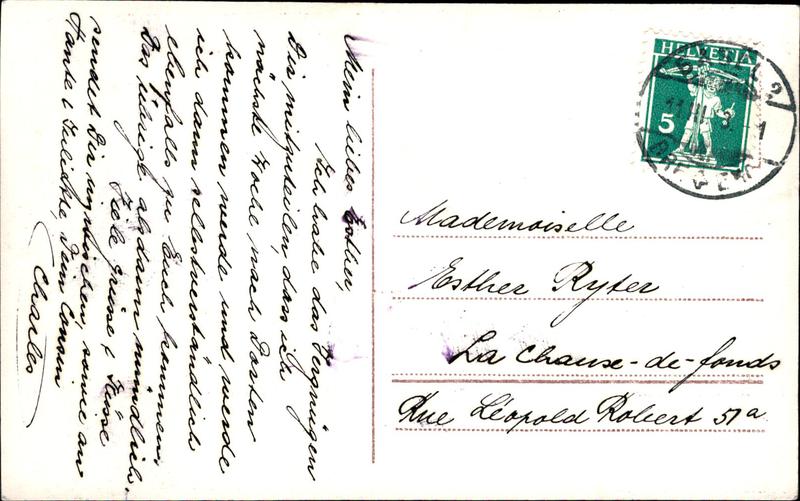 Mein liebes Esther,
Ich habe das Vergnügen
Dir mitzuteilen, dass ich
nächste Woche nach Dorten
kommen werde und werde
ich dann selbstverständlich
ebenfalls zu Euch kommen.
Das übrige alsdann mündlich.
Viele Grüsse & Küsse
sendet Dir inzwischen, sowie an
Tante & Dein Cousin
Charles
HELVETIA
5
Mademoiselle
Esther Ryter
La Chause-de-fonds
Rue Léopold Robert 51a